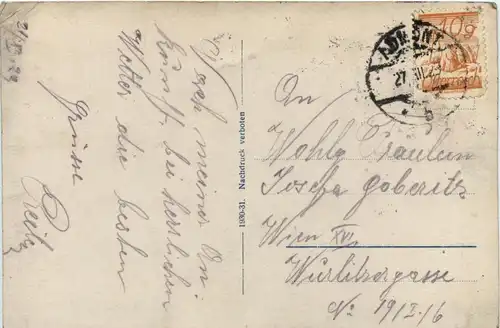 Nach meiner An-
kunft bei herrlichen
Wetter die besten
Grüsse
1930-31. Nachdruck verboten
ADMONT
40 g
An
Wohlg Fräulein
Josefa Goberitz
Wien XVI
Wurlitzergasse
No 19/I/16